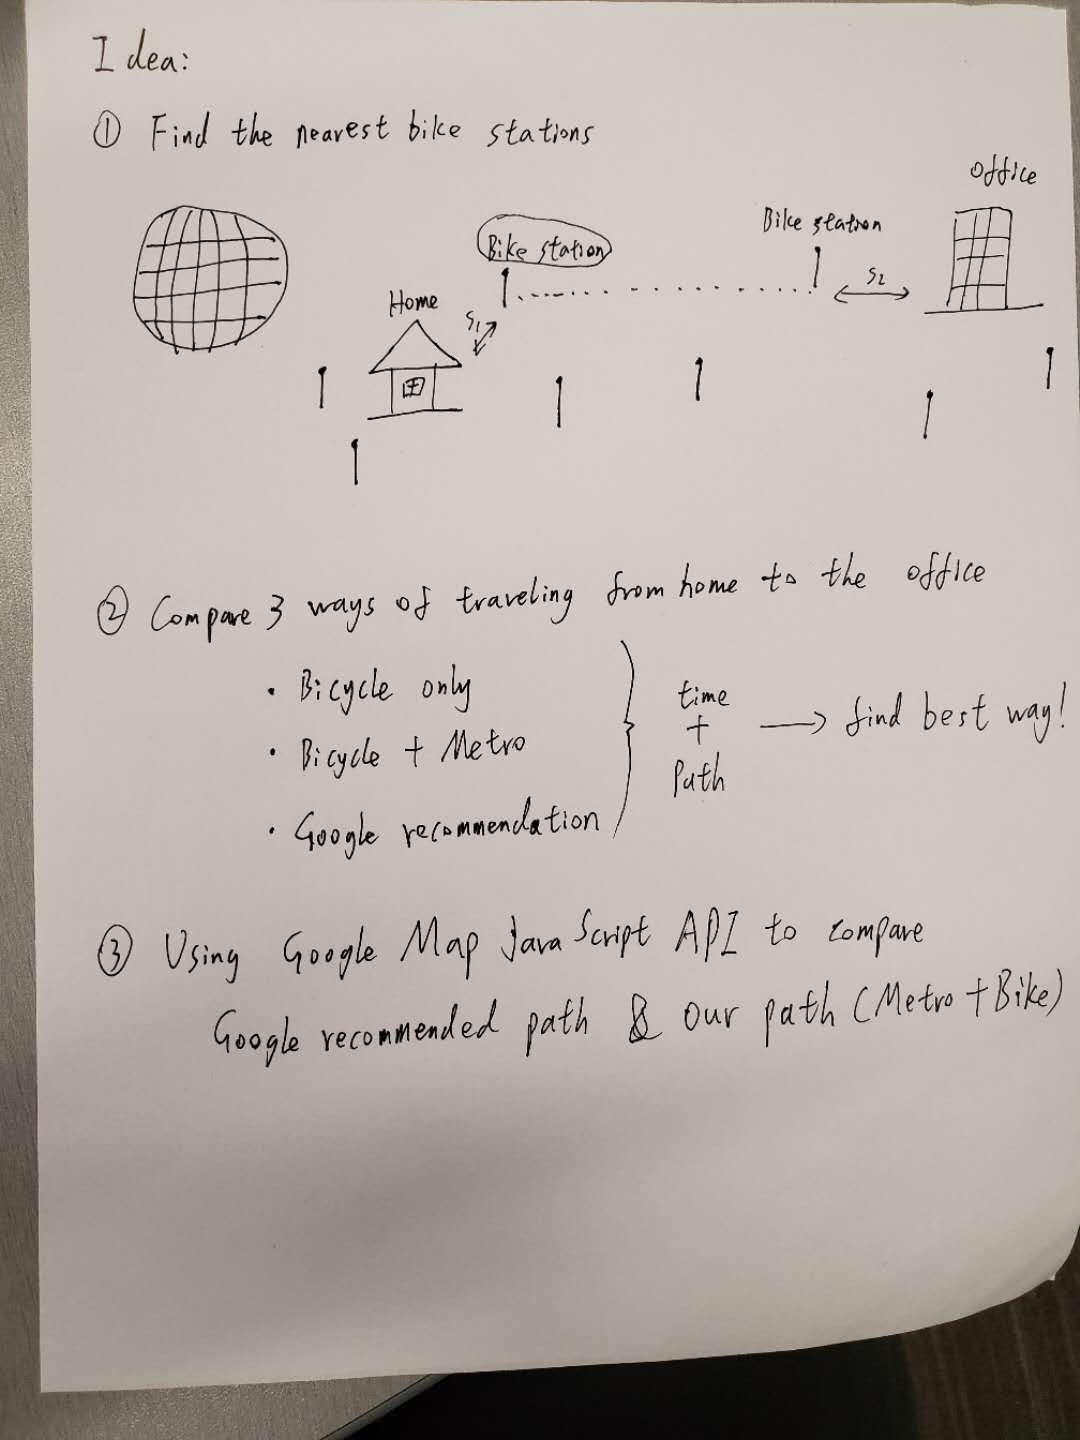 Idea:
① Find the nearest bike stations
Office
Bike station
Bike station
S2
Home
S1
② Compare 3 ways of traveling from home to the office
· Bicycle only
· Bicycle + Metro
· Google recommendation
time
+
Path
→ find best way!
③ Using Google Map JavaScript API to compare
Google recommended path & our path (Metro + Bike)